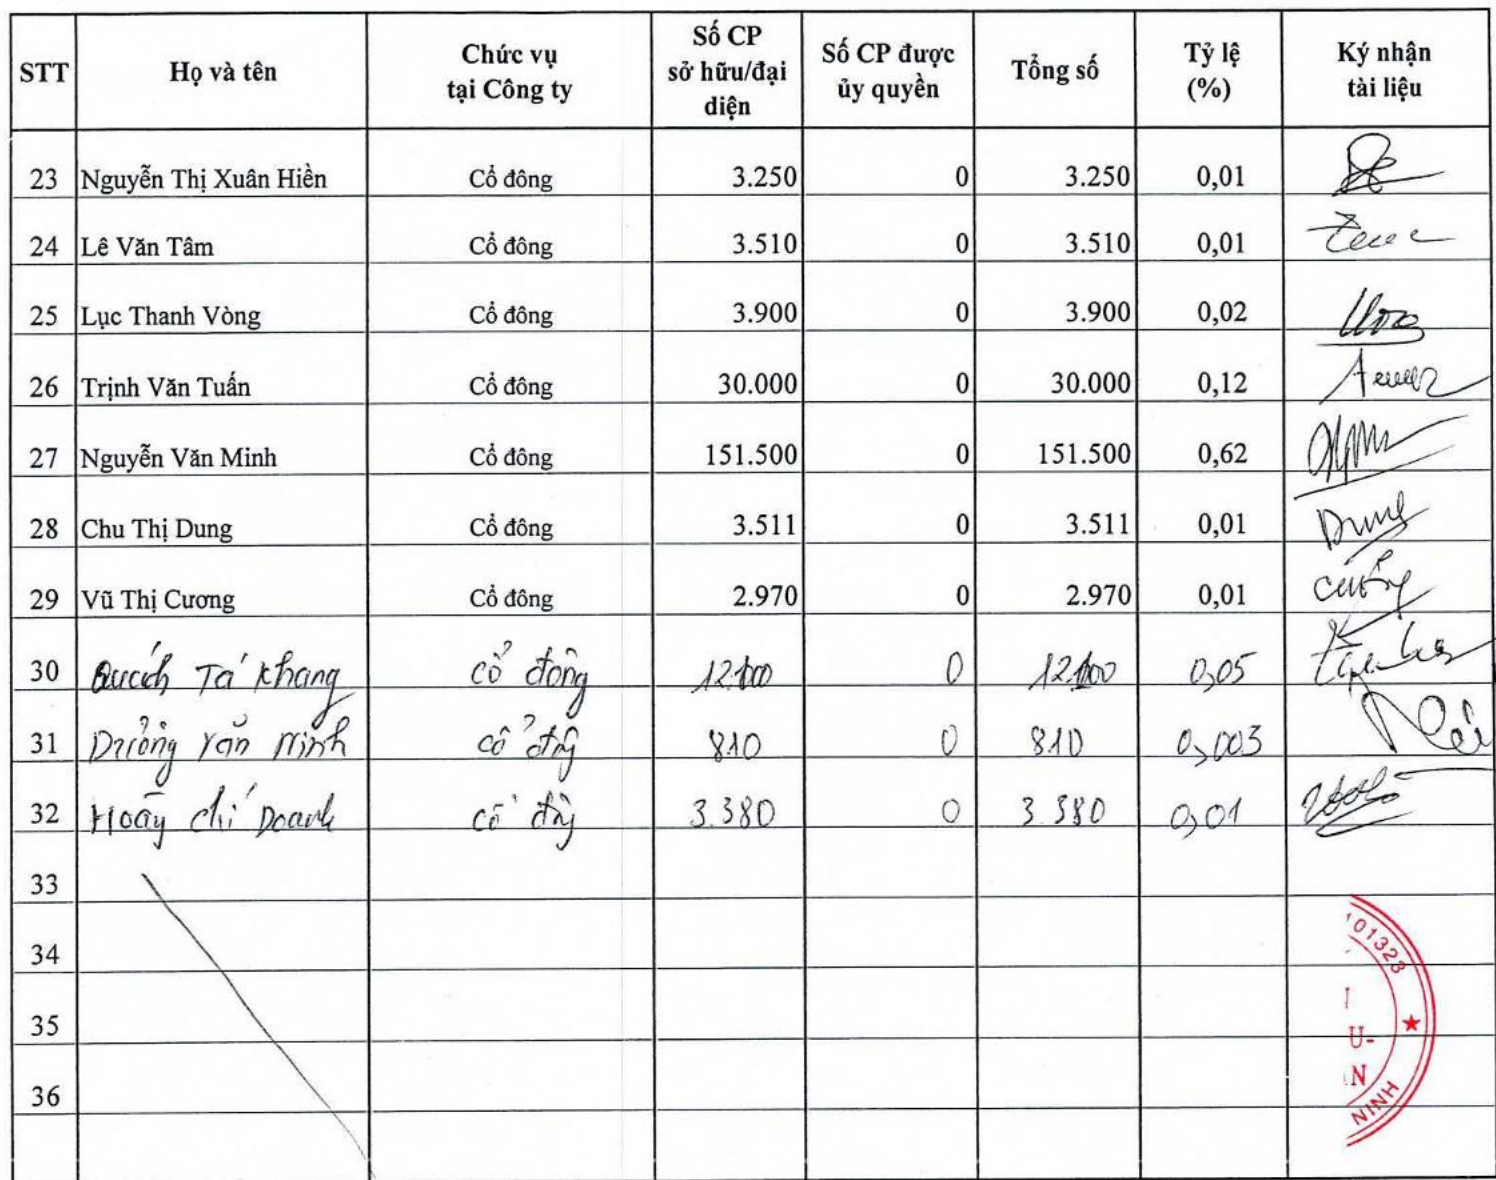 STT Họ và tên Chức vụ tại Công ty Số CP sở hữu/đại diện Số CP được ủy quyền Tổng số Tỷ lệ (%) Ký nhận tài liệu
23 Nguyễn Thị Xuân Hiền Cổ đông 3.250 0 3.250 0,01
24 Lê Văn Tâm Cổ đông 3.510 0 3.510 0,01
25 Lục Thanh Vòng Cổ đông 3.900 0 3.900 0,02
26 Trịnh Văn Tuấn Cổ đông 30.000 0 30.000 0,12
27 Nguyễn Văn Minh Cổ đông 151.500 0 151.500 0,62
28 Chu Thị Dung Cổ đông 3.511 0 3.511 0,01 Dung
29 Vũ Thị Cương Cổ đông 2.970 0 2.970 0,01
30 Quách Tá Khang cổ đông 0 0,05
31 Văn Ninh cổ đông 810 0 810 0,003
32 Chí Doanh cổ đông 3.380 0 3.380 0,01
33
34
35
36
101323
U-
N
NINH